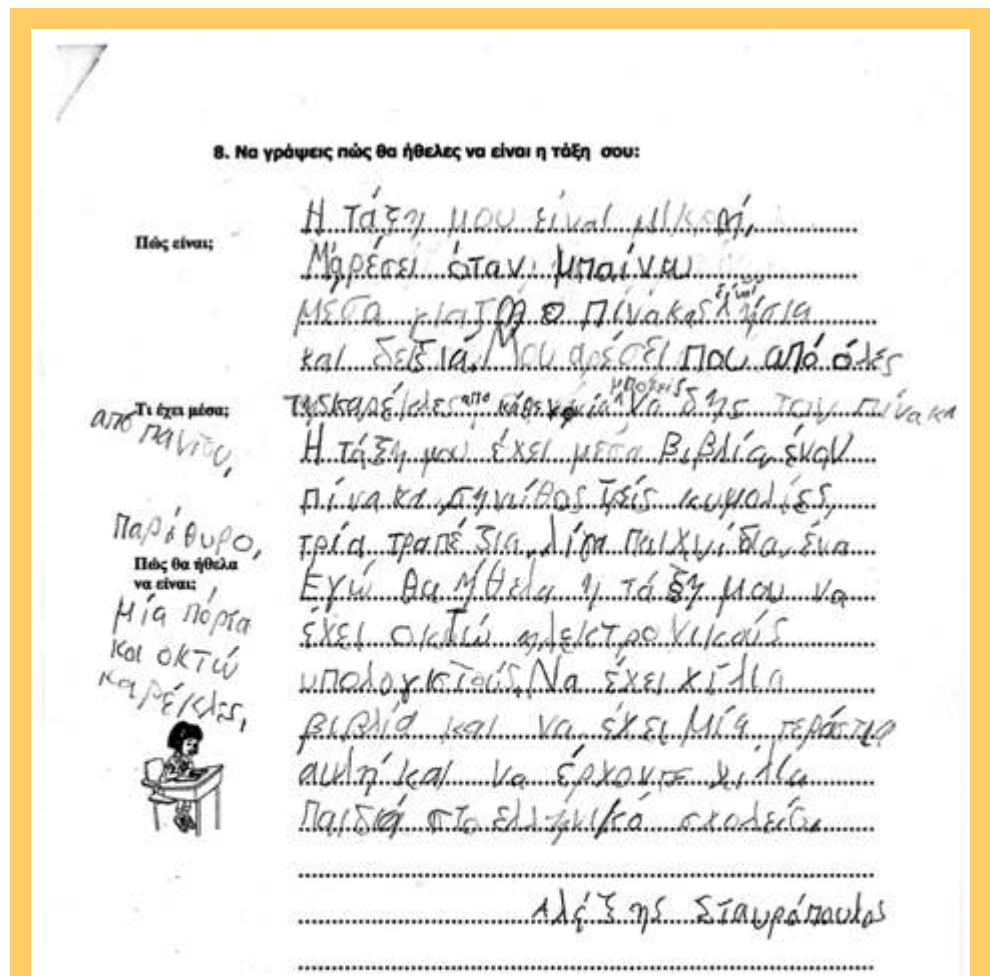 8. Να γράψεις πώς θα ήθελες να είναι η τάξη σου:
Πώς είναι;
Η τάξη μου είναι μικρή,
Μ'αρέσει όταν μπαίνω
μέσα γιατί ο πίνακας είναι ίσια
και δεξιά. Μου αρέσει που από όλες
Τι έχει μέσα;
τις καρέκλες από κάθε μία μπορείς να δης τον πίνακα
Η τάξη μου έχει μέσα βιβλία, έναν
πίνακα, σηνίθος τρίς κιμολίες,
τρία τραπέζια, λίγα παιχνίδια, ένα
από πανίτου,
παράθυρο,
μία πόρτα
και οκτώ
καρέκλες,
Πώς θα ήθελα
να είναι;
Εγώ θα ήθελα η τάξη μου να
έχει οκτώ ηλεκτρονικούς
υπολογιστούς. Να έχει χίλια
βιβλία και να έχει μία τεράστια
αυλή και να έρχοντε χίλια
παιδιά στο ελληνικό σχολείο.
Αλέξης Σταυρόπουλος